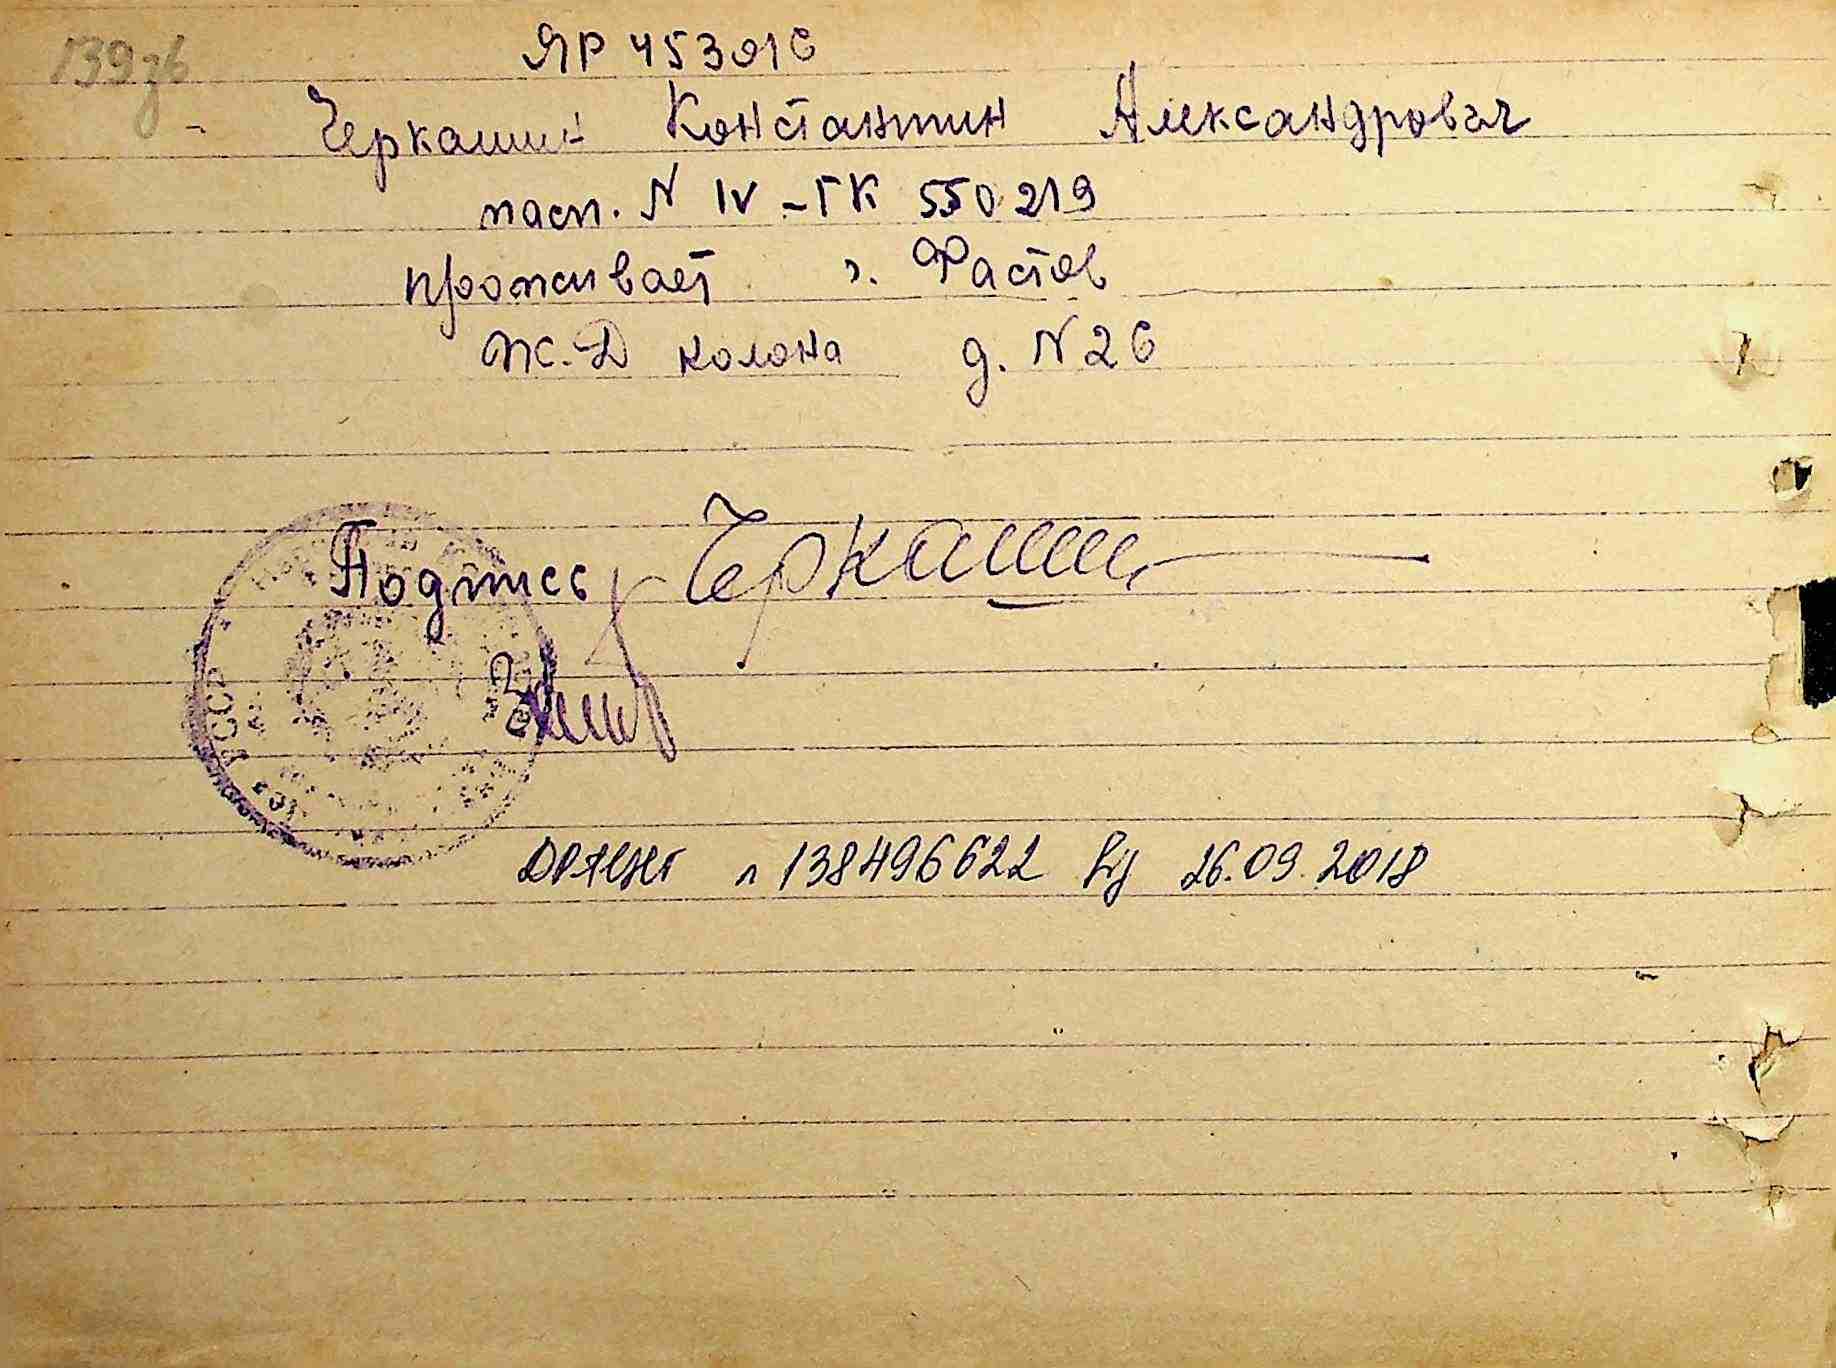 139зв
ЯР 453016
Черкашин Константин Александрович
пасп. N IV - ГК 550219
проживает г. Фастов
Ж.-Д колона д. N 26
Подпись Черкашин
УССР
n 138496622 26.09.2018